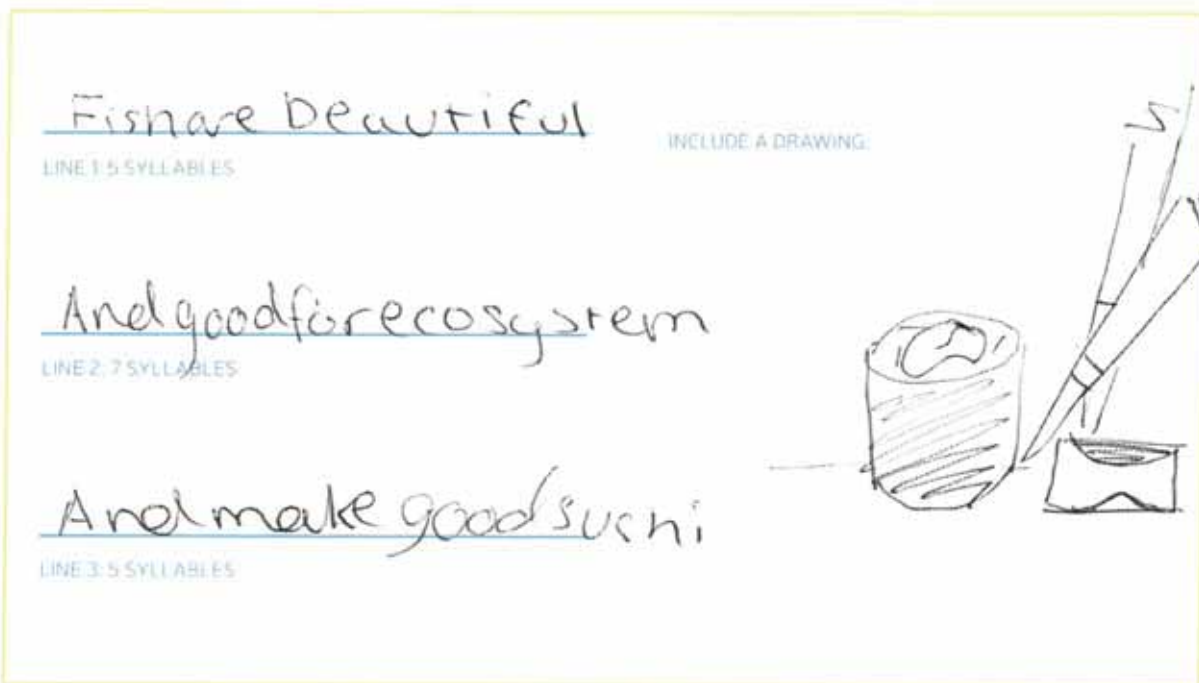 Fish are beautiful
LINE 1: 5 SYLLABLES
INCLUDE A DRAWING:
And good for ecosystem
LINE 2: 7 SYLLABLES
And make good sushi
LINE 3: 5 SYLLABLES